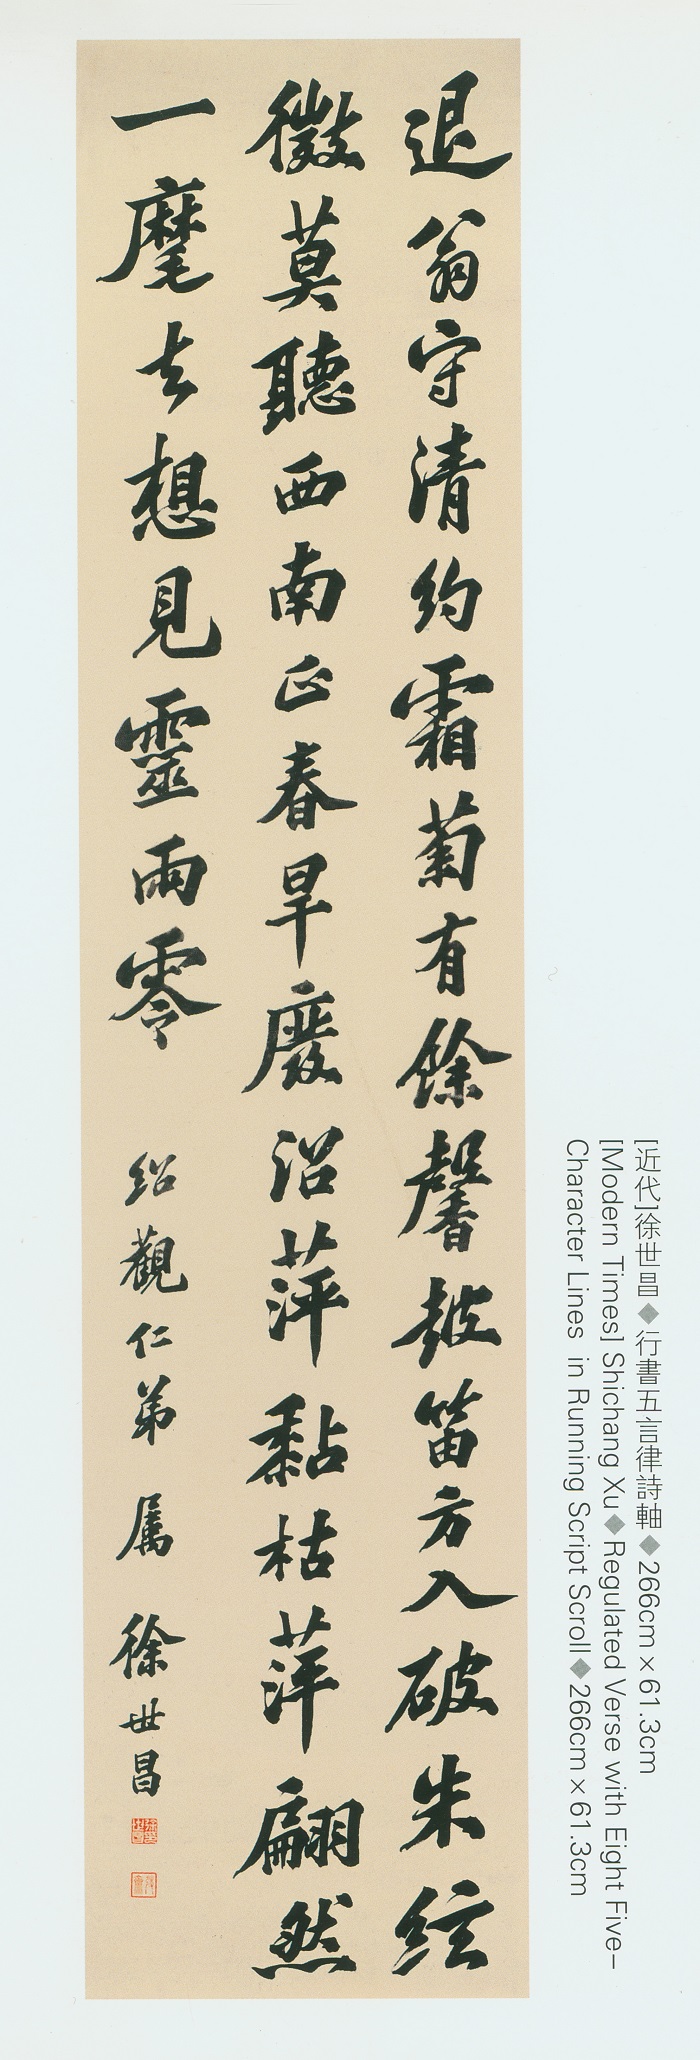 [近代]徐世昌◆行書五言律詩軸◆266cm×61.3cm
[Modern Times] Shichang Xu◆Regulated Verse with Eight Five-
Character Lines in Running Script Scroll◆266cm×61.3cm
退翁守清約霜菊有餘馨皷笛方入破朱絃
微莫聽西南正春旱廢沼萍黏枯萍翩然
一麾去想見靈雨零 紹觀仁弟屬 徐世昌